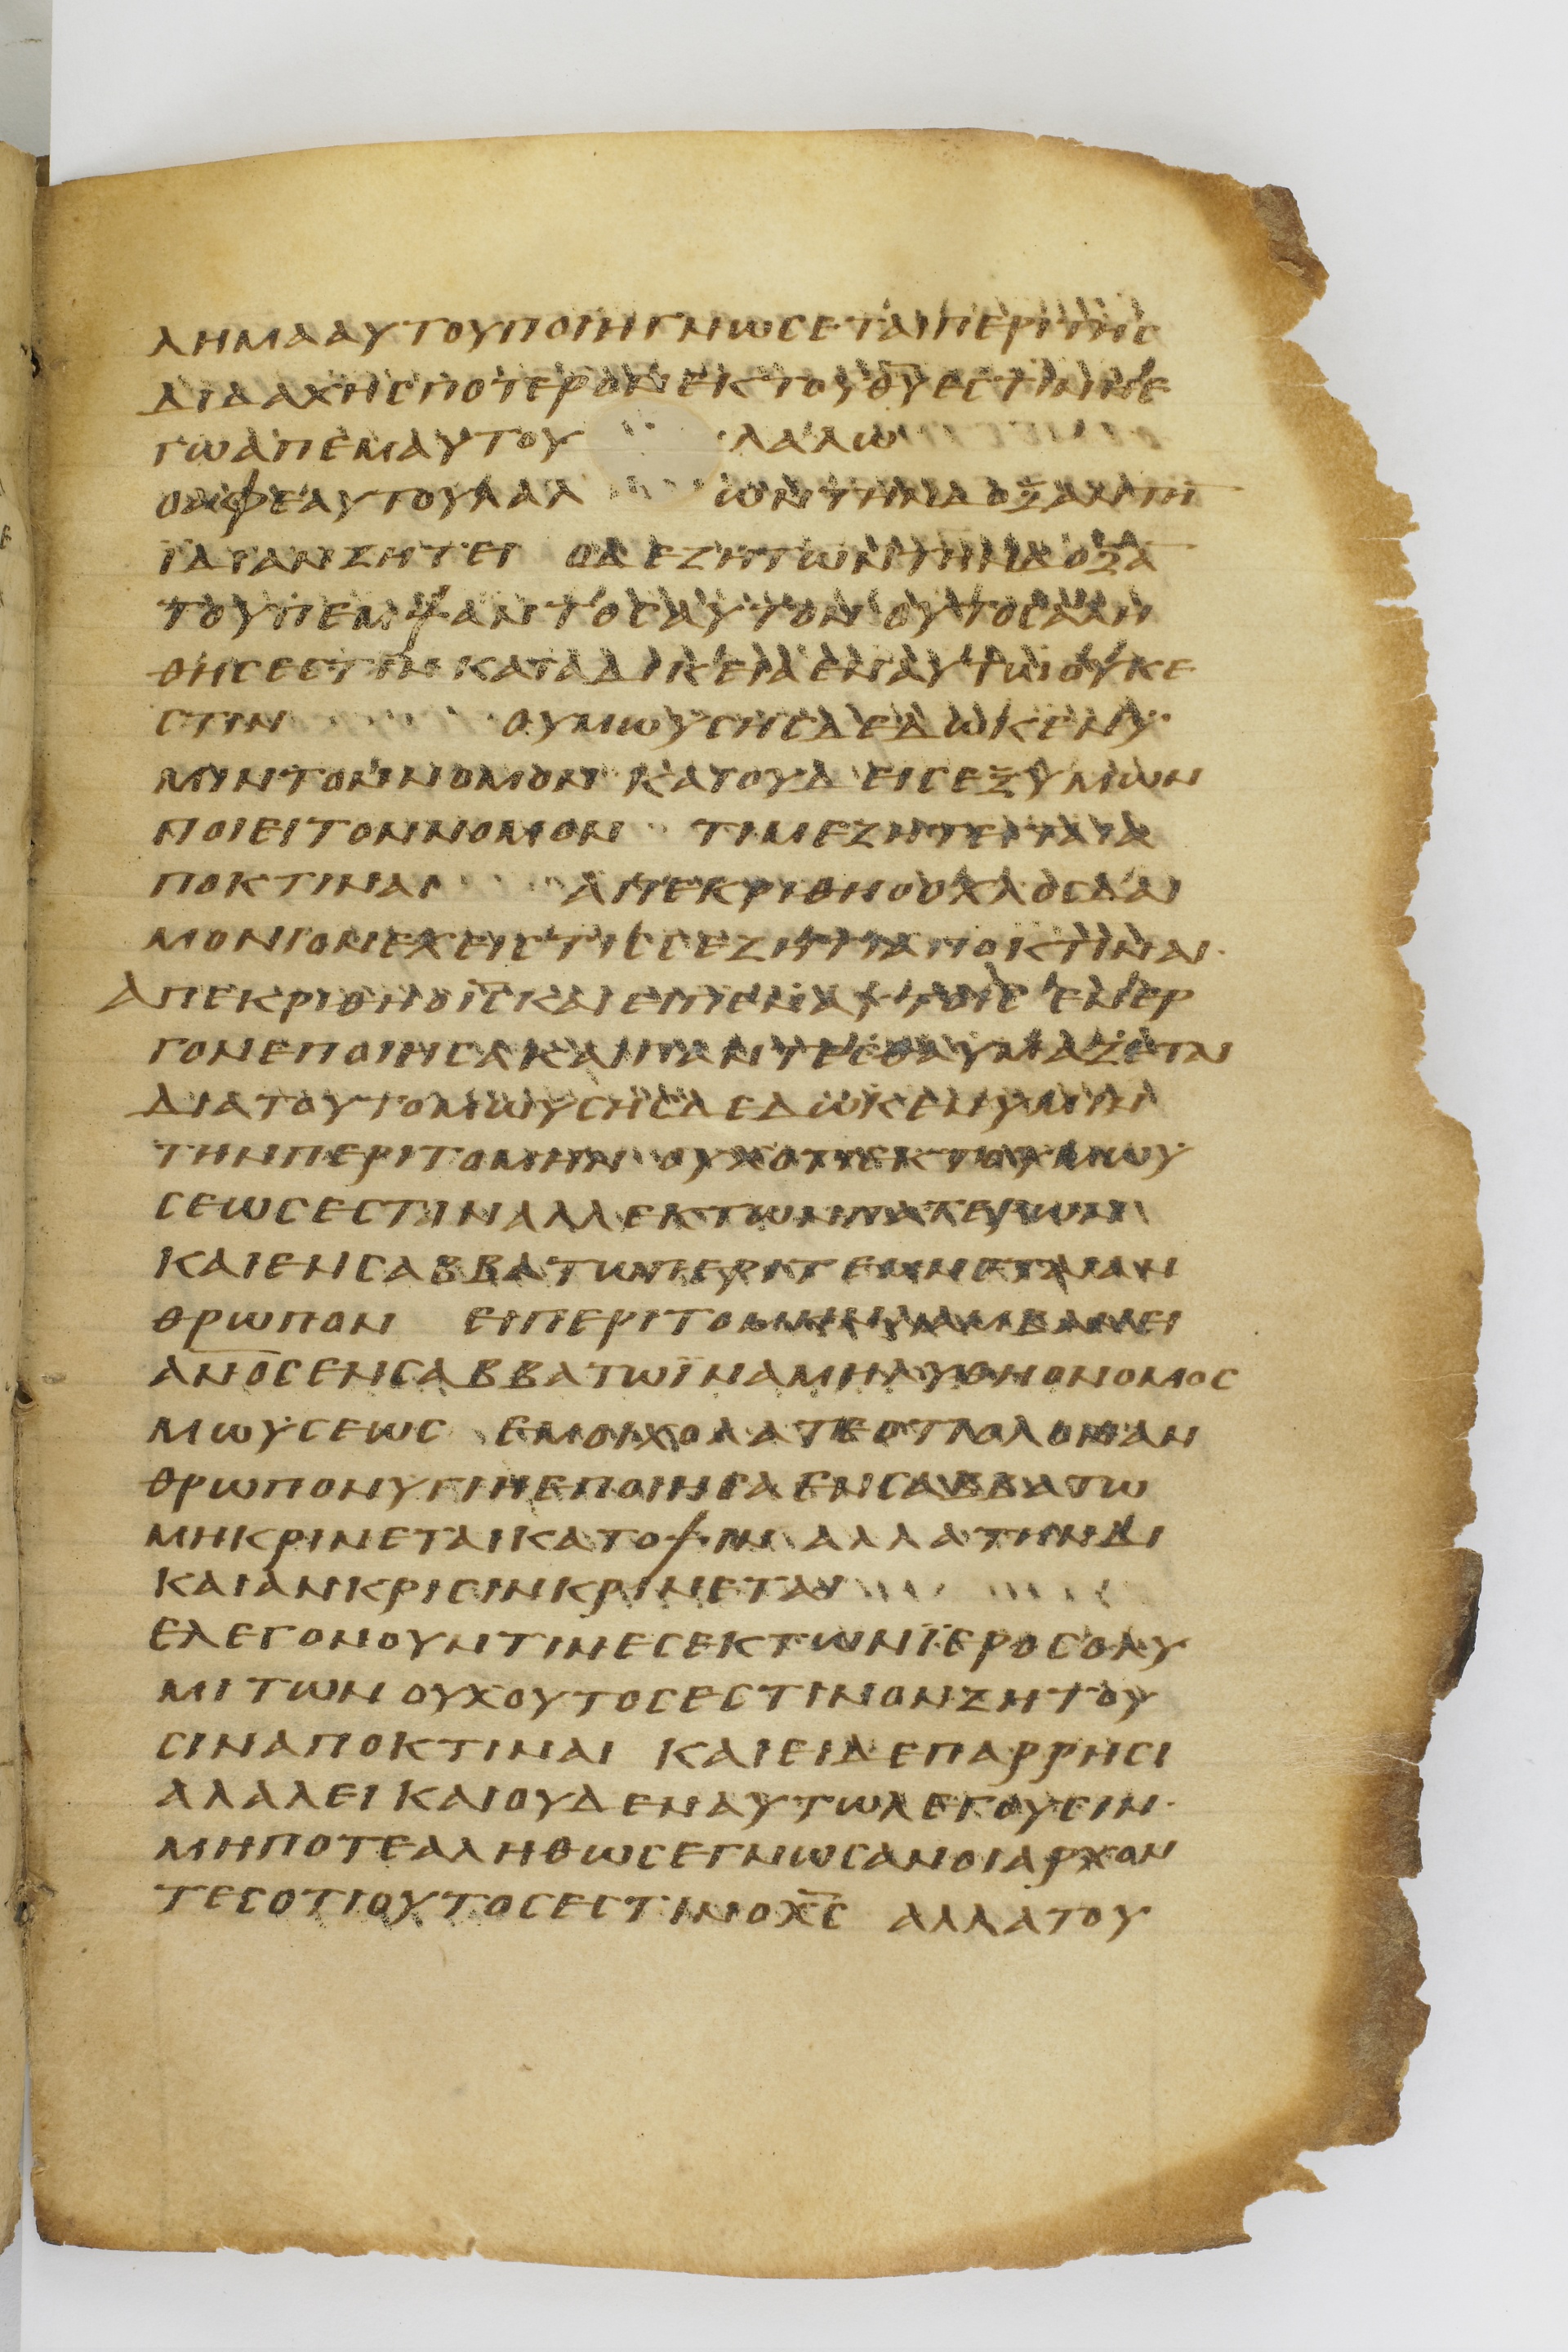 ΛΗΜΑΑΥΤΟΥΠΟΙΗΓΝΩΣΕΤΑΙΠΕΡΙΤΗΣ
ΔΙΔΑΧΗΣΠΟΤΕΡΟΝΕΚΤΟΥΘ̅Υ̅ΕΣΤΙΝΗΕ
ΓΩΑΠΕΜΑΥΤΟΥ ΛΑΛΩ
ΟΑΦΕΑΥΤΟΥΛΑΛ ΩΝΤΗΝΔΟΞΑΝΤΗ
ΙΔΙΑΝΖΗΤΕΙ ΟΔΕΖΗΤΩΝΤΗΝΔΟΞΑ̅
ΤΟΥΠΕΜΨΑΝΤΟΣΑΥΤΟΝΟΥΤΟΣΑΛΗ
ΘΗΣΕΣΤΙΝΚΑΙΑΔΙΚΕΙΑΕΝΑΥΤΩΟΥΚΕ
ΣΤΙΝ ΟΥΜΩΥΣΗΣΔΕΔΩΚΕΝΥ
ΜΙΝΤΟΝΝΟΜΟΝ ΚΑΙΟΥΔΕΙΣΕΞΥΜΩΝ
ΠΟΙΕΙΤΟΝΝΟΜΟΝ ΤΙΜΕΖΗΤΕΙΤΑΙΑ
ΠΟΚΤΙΝΑΙ ΑΠΕΚΡΙΘΗΟΟΧΛΟΣΔΑΙ
ΜΟΝΙΟΝΕΧΕΙΣΤΙΣΣΕΖΗΤΙΑΠΟΚΤΙΝΑΙ
ΑΠΕΚΡΙΘΗΟΙ̅Σ̅ΚΑΙΕΙΠΕΝΑΥΤΟΙΣΕΝΕΡ
ΓΟΝΕΠΟΙΗΣΑΚΑΙΠΑΝΤΕΣΘΑΥΜΑΖΕΤΑΙ
ΔΙΑΤΟΥΤΟΜΩΥΣΗΣΔΕΔΩΚΕΝΥΜΙΝ
ΤΗΝΠΕΡΙΤΟΜΗΝ ΟΥΧΟΤΙΕΚΤΟΥΜΩΥ
ΣΕΩΣΕΣΤΙΝΑΛΛΕΚΤΩΝΠΑΤΕΡΩΝ
ΚΑΙΕΝΣΑΒΒΑΤΩΠΕΡΙΤΕΜΝΕΤΑΙΑΝ
ΘΡΩΠΟΝ ΕΙΠΕΡΙΤΟΜΗΝΛΑΜΒΑΝΕΙ
Α̅Ν̅Ο̅Σ̅ΕΝΣΑΒΒΑΤΩΪΝΑΜΗΛΥΘΗΟΝΟΜΟΣ
ΜΩΥΣΕΩΣ ΕΜΟΙΧΟΛΑΤΕΟΤΙΟΛΟΝΑΝ
ΘΡΩΠΟΝΥΓΙΗΕΠΟΙΗΣΑΕΝΣΑΒΒΑΤΩ
ΜΗΚΡΙΝΕΤΑΙΚΑΤΟΨΙΝ ΑΛΛΑΤΗΝΔΙ
ΚΑΙΑΝΚΡΙΣΙΝΚΡΙΝΕΤΑΙ
ΕΛΕΓΟΝΟΥΝΤΙΝΕΣΕΚΤΩΝΪΕΡΟΣΟΛΥ
ΜΙΤΩΝΟΥΧΟΥΤΟΣΕΣΤΙΝΟΝΖΗΤΟΥ
ΣΙΝΑΠΟΚΤΙΝΑΙ ΚΑΙΕΙΔΕΠΑΡΡΗΣΙ
ΑΛΑΛΕΙΚΑΙΟΥΔΕΝΑΥΤΩΛΕΓΟΥΣΙΝ
ΜΗΠΟΤΕΑΛΗΘΩΣΕΓΝΩΣΑΝΟΙΑΡΧΟΝ
ΤΕΣΟΤΙΟΥΤΟΣΕΣΤΙΝΟΧ̅Σ̅ ΑΛΛΑΤΟΥ